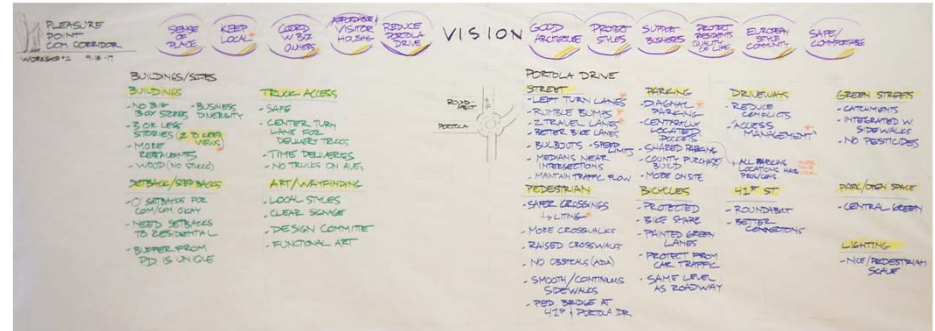 PLEASURE
POINT
COM CORRIDOR
WORKSHOP #1 9-18-17
SENSE
OF
PLACE
KEEP
LOCAL
COORD
W BIZ
OWNERS
AFFORDABLE/
VISITOR
HOUSING
REDUCE
PORTOLA
DRIVE
VISION
GOOD
ARCHITECTURE
PROTECT
STYLES
SUPPORT
BUSINESSES
PROTECT
RESIDENTS
QUALITY
OF LIFE
EUROPEAN
STYLE
COMMUNITY
SAFE/
COMFORTABLE
BUILDINGS/SITES
BUILDINGS
- NO BIG
BOX STORES
- BUSINESS
DIVERSITY
- 3 OR LESS
STORIES (2 TO KEEP
VIEWS)
- MORE
RESTAURANTS
- WOOD (NO STUCCO)
SETBACK/STEPBACKS
- 0' SETBACKS FOR
COM/COM OKAY
- NEED SETBACKS
TO RESIDENTAL
- BUFFER FROM
P.D. IS UNIQUE
TRUCK ACCESS
- SAFE
- CENTER TURN
LANE FOR
DELIVERY TRUCKS
- TIME DELIVERIES
- NO TRUCKS ON AVES
ART/WAYFINDING
- LOCAL STYLES
- CLEAR SIGNAGE
- DESIGN COMMITTE
- FUNCTIONAL ART
ROUND-
ABOUT
PORTOLA
PORTOLA DRIVE
STREET
- LEFT TURN LANES
- RUMBLE BUMPS
- 2 TRAVEL LANES
- BETTER BIKE LANES
- BULBOUTS - SPEED
LIMITS
- MEDIANS NEAR
INTERSECTIONS
- MAINTAIN TRAFFIC FLOW
PEDESTRIAN
- SAFER CROSSINGS
↳ LITING
- MORE CROSSWALKS
- RAISED CROSSWALKS
- NO OBSTICALS (ADA)
- SMOOTH/CONTINUOUS
SIDEWALKS
- PED. BRIDGE AT
41ST & PORTOLA DR
PARKING
- DIAGNAL
PARKING
- CENTRALLY
LOCATED
POCKETS
- SHARED PARKING
- COUNTY PURCHASE/
BUILD
- MORE ONSITE
BICYCLES
- PROTECTED
- BIKE SHARE
- PAINTED GREEN
LANES
- PROTECT FROM
CAR TRAFFIC
- SAME LEVEL
AS ROADWAY
DRIVEWAYS
- REDUCE
CONFLICTS
- "ACCESS
MANAGEMENT"
* ALL PARKING
LOCATIONS HAVE
PROS/CONS
41ST ST
- ROUNDABOUT
- BETTER
CONNECTIONS
GREEN STREETS
- CATCHMENTS
- INTEGRATED W.
SIDEWALKS
- NO PESTICIDES
PARK/OPEN SPACE
- CENTRAL GREEN
LIGHTING
- NICE/PEDESTRIAN
SCALE